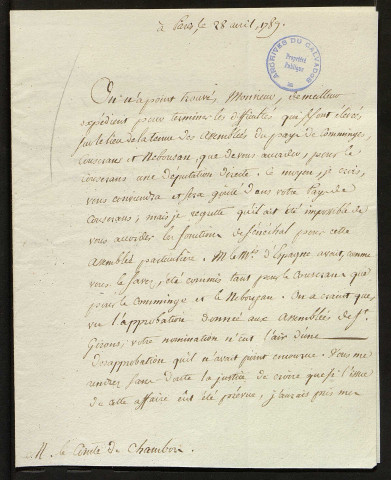 à Paris le 28 avril, 1789.
ARCHIVES DU CALVADOS
Propriété
Publique
On n'a point trouvé, Monsieur, de meilleur
expédient pour terminer les difficultés qui se sont élevées,
sur le lieu de la tenue des Assemblées du pays de Comminges,
Couserans et Nebouzan, que de vous accorder, pour le
Couserans une députation directe. Ce moyen, je crois,
vous conviendra et sera goûté dans votre Pays de
Couserans, mais je regrette qu'il ait été impossible de
vous accorder les fonctions de Sénéchal pour cette
Assemblée particulière. M. le Mis. d'Espagne avait, comme
vous le savez, été commis tant pour le Couserans que
pour le Comminges et le Nebouzan. On a craint que,
vu l'approbation donnée aux Assemblées de St.
Girons, votre nomination n'eut l'air d'une
désapprobation qu'il n'avait point encourue. Vous me
rendrez sans doute la justice de croire que si l'issue
de cette affaire eut été prévue, j'aurais pris mes
M. le Comte de Chambors.